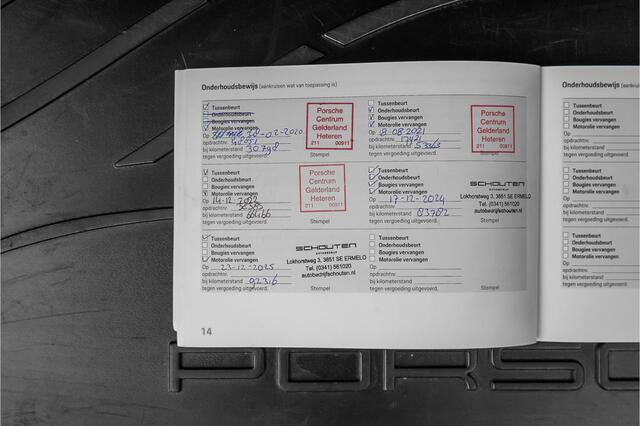 Onderhoudsbewijs (aankruisen wat van toepassing is)
Tussenbeurt
Onderhoudsbeurt
Bougies vervangen
Motorolie vervangen
Op 20-02-2020
opdrachtnr.
bij kilometerstand 30798
tegen vergoeding uitgevoerd.
Stempel
Porsche
Centrum
Gelderland
Heteren
211 00911
Tussenbeurt
Onderhoudsbeurt
Bougies vervangen
Motorolie vervangen
Op 8-08-2021
opdrachtnr.
bij kilometerstand 53363
tegen vergoeding uitgevoerd.
Stempel
Porsche
Centrum
Gelderland
Heteren
211 00911
Tussenbeurt
Onderhoudsbeurt
Bougies vervangen
Motorolie vervangen
Op 14-12-2022
opdrachtnr.
bij kilometerstand
tegen vergoeding uitgevoerd.
Stempel
Porsche
Centrum
Gelderland
Heteren
211 00911
Tussenbeurt
Onderhoudsbeurt
Bougies vervangen
Motorolie vervangen
Op 17-12-2024
opdrachtnr.
bij kilometerstand 83702
tegen vergoeding uitgevoerd.
Stempel
SCHOUTEN
Lokhorstweg 3, 3851 SE ERMELO
Tel. (0341) 561020
autobedrijfschouten.nl
Tussenbeurt
Onderhoudsbeurt
Bougies vervangen
Motorolie vervangen
Op 23-12-2025
opdrachtnr.
bij kilometerstand 92316
tegen vergoeding uitgevoerd.
Stempel
SCHOUTEN
Lokhorstweg 3, 3851 SE ERMELO
Tel. (0341) 561020
autobedrijfschouten.nl
Tussenbeurt
Onderhoudsbeurt
Bougies vervangen
Motorolie vervangen
Op
opdrachtnr.
bij kilometerstand
tegen vergoeding uitgevoerd.
Stempel
14
Onderhoudsbewijs (aankruisen
Tussenbeurt
Onderhoudsbeurt
Bougies vervangen
Motorolie vervangen
Op
opdrachtnr.
bij kilometerstand
tegen vergoeding uitgevoerd.
Tussenbeurt
Onderhoudsbeurt
Bougies vervangen
Motorolie vervangen
Op
opdrachtnr.
bij kilometerstand
tegen vergoeding uitgevoerd.
Tussenbeurt
Onderhoudsbeurt
Bougies vervangen
Motorolie vervangen
Op
opdrachtnr.
bij kilometerstand
tegen vergoeding uitgevoerd.